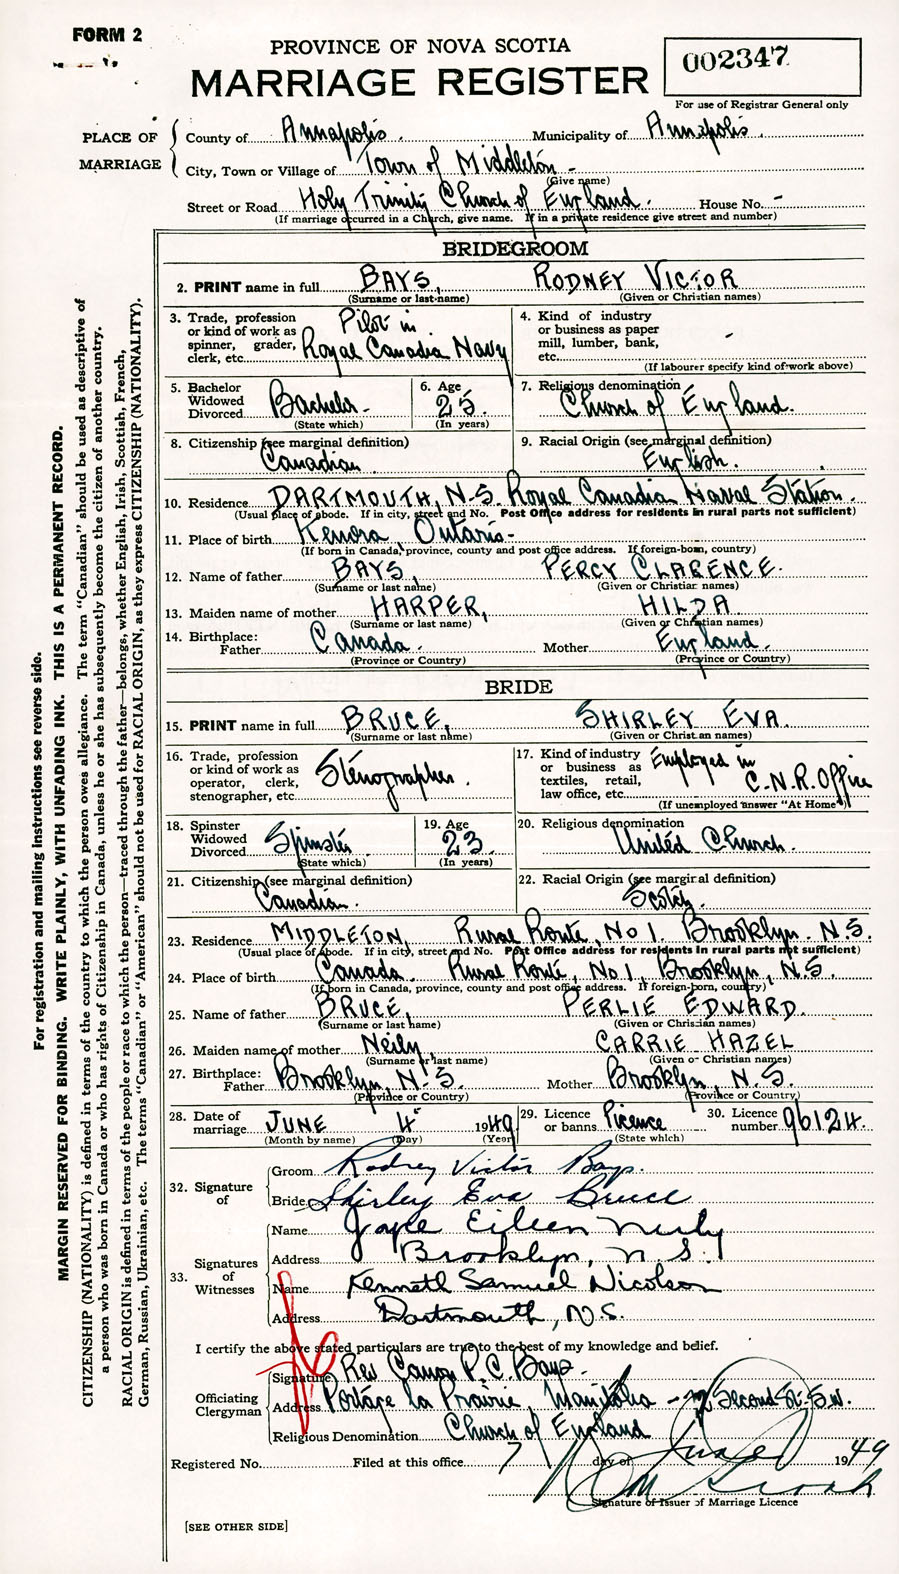 FORM 2
PROVINCE OF NOVA SCOTIA
MARRIAGE REGISTER
002347
For use of Registrar General only
PLACE OF MARRIAGE
County of Annapolis. Municipality of Annapolis.
City, Town or Village of Town of Middleton -
(Give name)
Street or Road Holy Trinity Church of England. House No. -
(If marriage occurred in a Church, give name. If in a private residence give street and number)
For registration and mailing instructions see reverse side.
MARGIN RESERVED FOR BINDING. WRITE PLAINLY, WITH UNFADING INK. THIS IS A PERMANENT RECORD.
CITIZENSHIP (NATIONALITY) is defined in terms of the country to which the person owes allegiance. The term "Canadian" should be used as descriptive of
a person who was born in Canada or who has rights of Citizenship in Canada, unless he or she has subsequently become the citizen of another country.
RACIAL ORIGIN is defined in terms of the people or race to which the person—traced through the father—belongs, whether English, Irish, Scottish, French,
German, Russian, Ukrainian, etc. The terms "Canadian" or "American" should not be used for RACIAL ORIGIN, as they express CITIZENSHIP (NATIONALITY).
BRIDEGROOM
2. PRINT name in full BAYS, RODNEY VICTOR
(Surname or last name) (Given or Christian names)
3. Trade, profession or kind of work as spinner, grader, clerk, etc. Pilot in Royal Canadia Navy
4. Kind of industry or business as paper mill, lumber, bank, etc. -
(If labourer specify kind of work above)
5. Bachelor Widowed Divorced Bachelor -
(State which)
6. Age 25.
(In years)
7. Religious denomination Church of England.
8. Citizenship (see marginal definition) Canadian
9. Racial Origin (see marginal definition) English.
10. Residence DARTMOUTH, N.S. Royal Canadia Naval Station.
(Usual place of abode. If in city, street and No. Post Office address for residents in rural parts not sufficient)
11. Place of birth Kenora, Ontario -
(If born in Canada, province, county and post office address. If foreign-born, country)
12. Name of father BAYS, PERCY CLARENCE.
(Surname or last name) (Given or Christian names)
13. Maiden name of mother HARPER, HILDA
(Surname or last name) (Given or Christian names)
14. Birthplace: Father Canada. Mother England.
(Province or Country) (Province or Country)
BRIDE
15. PRINT name in full BRUCE, SHIRLEY EVA
(Surname or last name) (Given or Christian names)
16. Trade, profession or kind of work as operator, clerk, stenographer, etc. Stenographer.
17. Kind of industry or business as textiles, retail, law office, etc. Employed in C.N.R. Office
(If unemployed answer "At Home")
18. Spinster Widowed Divorced Spinster
(State which)
19. Age 23
(In years)
20. Religious denomination United Church.
21. Citizenship (see marginal definition) Canadian.
22. Racial Origin (see marginal definition) Scotch.
23. Residence MIDDLETON, Rural Route, No 1. Brooklyn. N.S.
(Usual place of abode. If in city, street and No. Post Office address for residents in rural parts not sufficient)
24. Place of birth Canada. Rural Route, No 1, Brooklyn, N.S.
(If born in Canada, province, county and post office address. If foreign-born, country)
25. Name of father BRUCE, PERLIE EDWARD.
(Surname or last name) (Given or Christian names)
26. Maiden name of mother Neily, CARRIE HAZEL
(Surname or last name) (Given or Christian names)
27. Birthplace: Father Brooklyn, N.S. Mother Brooklyn, N.S.
(Province or Country) (Province or Country)
28. Date of marriage JUNE 4 1949
(Month by name) (Day) (Year)
29. Licence or banns Licence
(State which)
30. Licence number 96124.
32. Signature of
Groom Rodney Victor Bays.
Bride Shirley Eva Bruce
33. Signatures of Witnesses
Name Joyce Eileen Neily
Address Brooklyn, N.S.
Name Kenneth Samuel Nicolson
Address Dartmouth, N.S.
I certify the above stated particulars are true to the best of my knowledge and belief.
Officiating Clergyman
(Signature) Rev Canon P.C. Bays
Address Portage la Prairie, Manitoba - Second St. S.W.
Religious Denomination Church of England
Registered No. Filed at this office 7 day of June 1949
Signature of Issuer of Marriage Licence
[SEE OTHER SIDE]